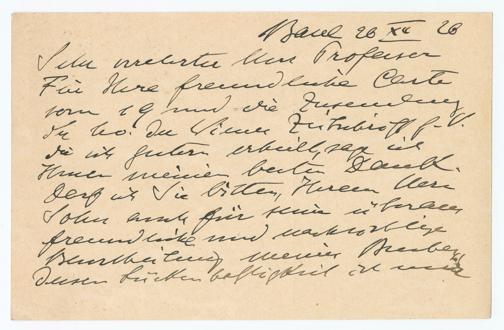 Basel 26 XII 26
Sehr verehrter Herr Professor
Für Ihre freundliche Carte
vom 19 und die Zusendung
der No. der Wiener
die ich gestern erhielt, sage ich
Ihnen meinen besten Dank.
Darf ich Sie bitten, Ihrem Herrn
Sohn auch für seine überaus
freundliche und nachsichtige
Beurtheilung meiner
deren Lückenhaftigkeit ist mir